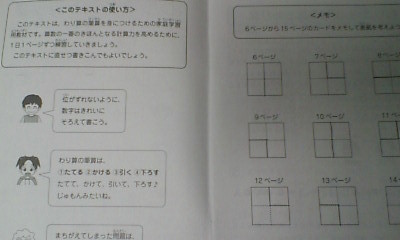 <このテキストの使い方>
このテキストは、わり算の筆算を身につけるための家庭学習
用教材です。算数の一番のきほんとなる計算力を高めるために、
1日1ページずつ練習していきましょう。
このテキストに直せつ書きこんでもよいでしょう。
位がずれないように、
数字はきれいに
そろえて書こう。
わり算の筆算は、
①たてる ②かける ③引く ④下ろす
たてて、かけて、引いて、下ろす♪
じゅもんみたいね。
まちがえてしまった問題は、
<メモ>
6ページから15ページのカードをメモして
6ページ
7ページ
9ページ
10ページ
11ペ
12ページ
13ページ
14